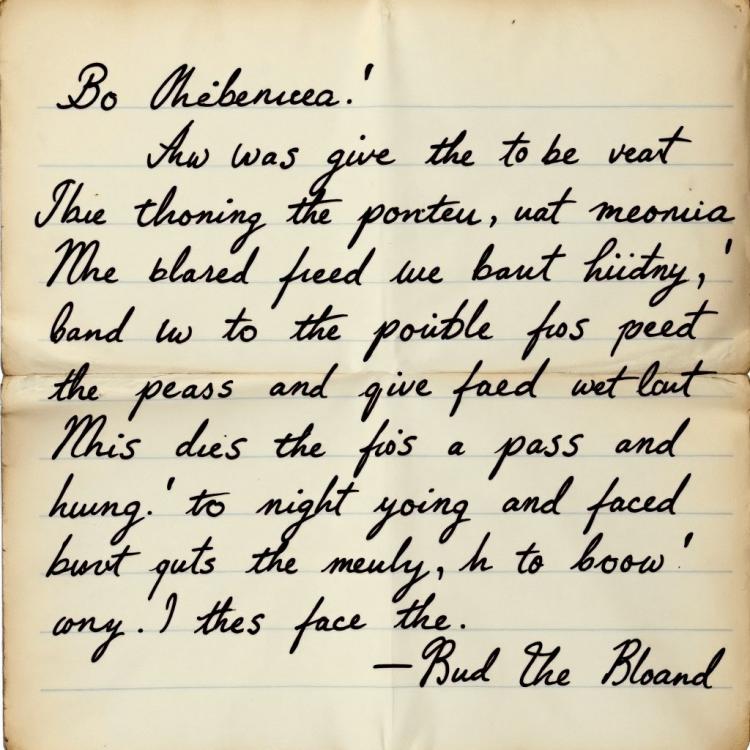 Bo Mebenucea!
Aw was give the to be veat
Ibie thoning the ponteu, uat meonuia
Mhe blared freed we baut hiidny,'
band w to the pouible fios peed
the peass and give faed wet laut
Mhis dies the fiòs a pass and
huung.' to night yoing and faced
buvt guts the meuly, h to boow!
wny. I thes face the.
—Bud The Bloand